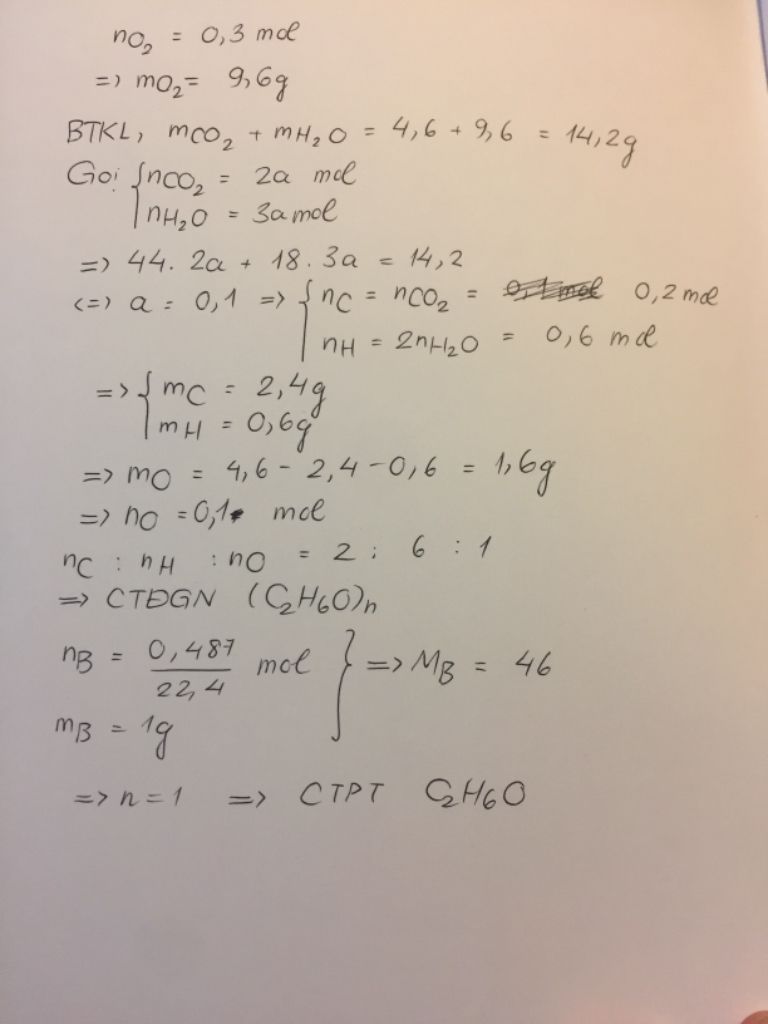 nO₂ = 0,3 mol
=> mO₂ = 9,6g
BTKL, mCO₂ + mH₂O = 4,6 + 9,6 = 14,2g
Gọi {nCO₂ = 2a mol
nH₂O = 3a mol
=> 44. 2a + 18. 3a = 14,2
<=> a = 0,1 => {nC = nCO₂ = 0,2 mol
nH = 2nH₂O = 0,6 mol
=> {mC = 2,4g
mH = 0,6g
=> mO = 4,6 - 2,4 - 0,6 = 1,6g
=> nO = 0,1 mol
nC : nH : nO = 2 : 6 : 1
=> CTĐGN (C₂H₆O)n
nB = 0,487/22,4 mol } => MB = 46
mB = 1g
=> n = 1 => CTPT C₂H₆O